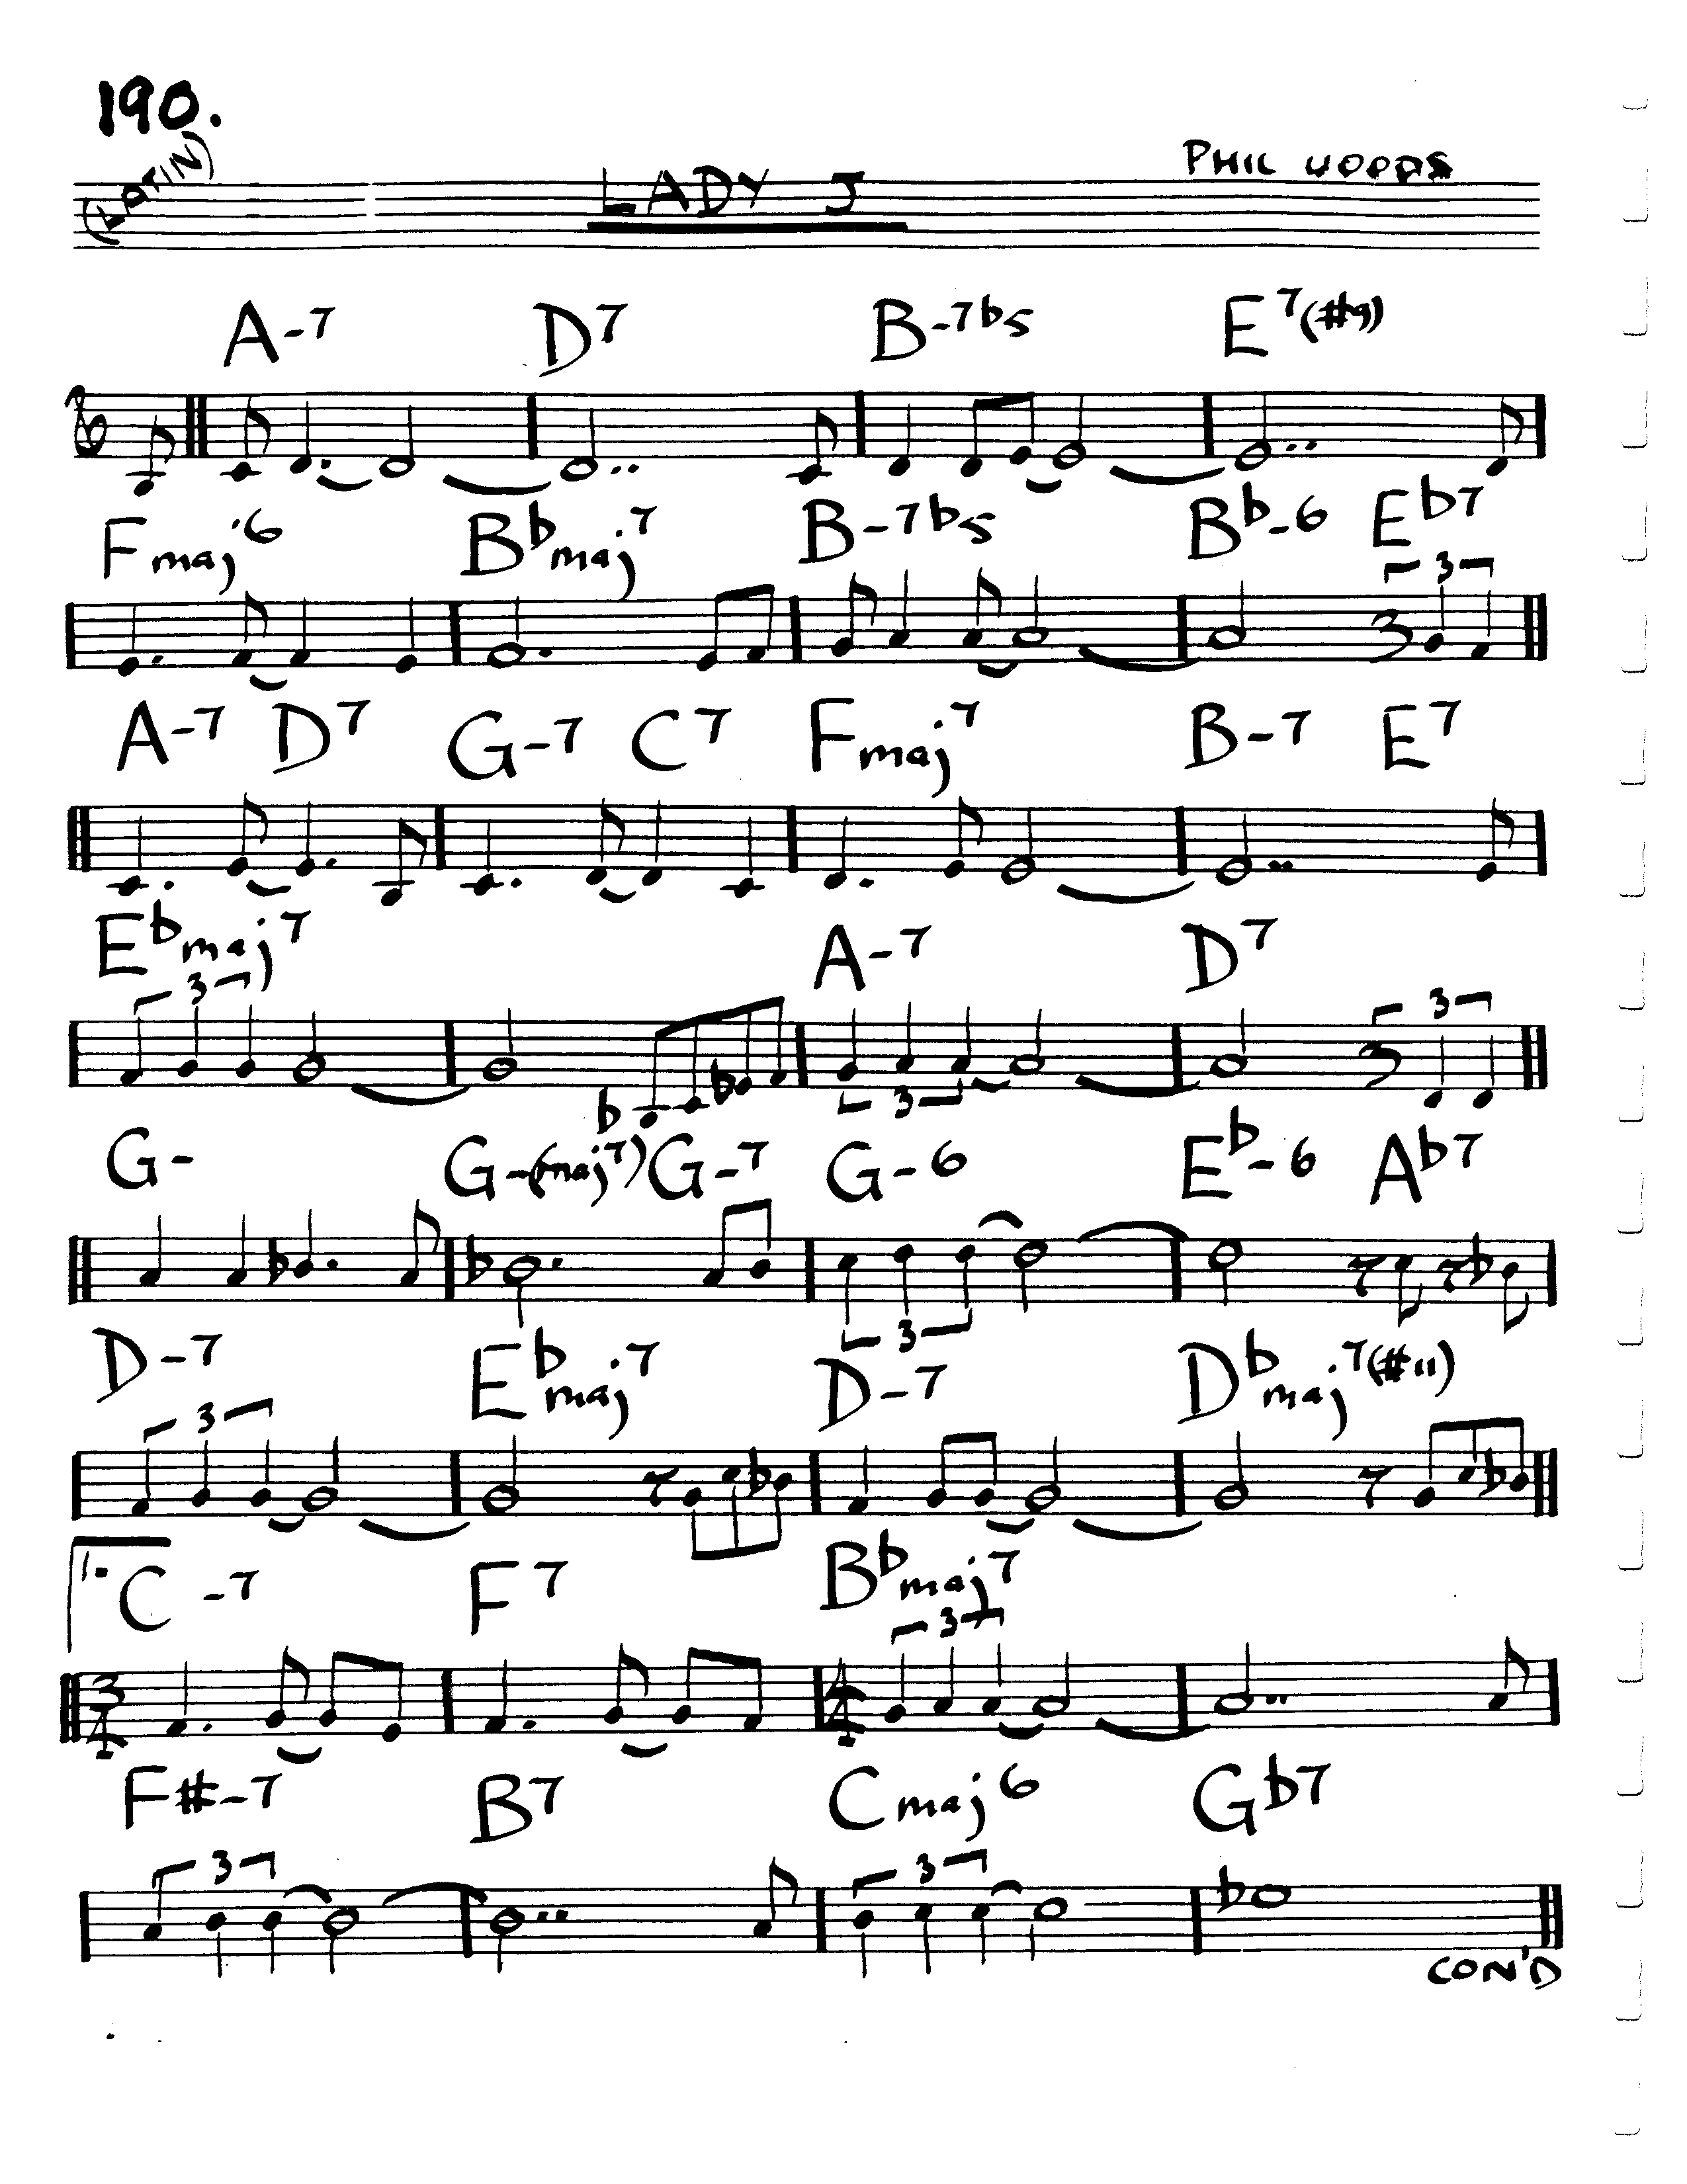 190.
(LATIN) LADY J PHIL WOODS
A-7 D7 B-7b5 E7(#9)
Fmaj6 Bbmaj7 B-7b5 Bb-6 Eb7
3
A-7 D7 G-7 C7 Fmaj7 B-7 E7
Ebmaj7 A-7 D7
3 3 3
G- G-(maj7) G-7 G-6 Eb-6 Ab7
3
D-7 Ebmaj7 D-7 Dbmaj7(#11)
3
1. C-7 F7 Bbmaj7
3
3/4 4/4
F#-7 B7 Cmaj6 Gb7
3 3
CON'D